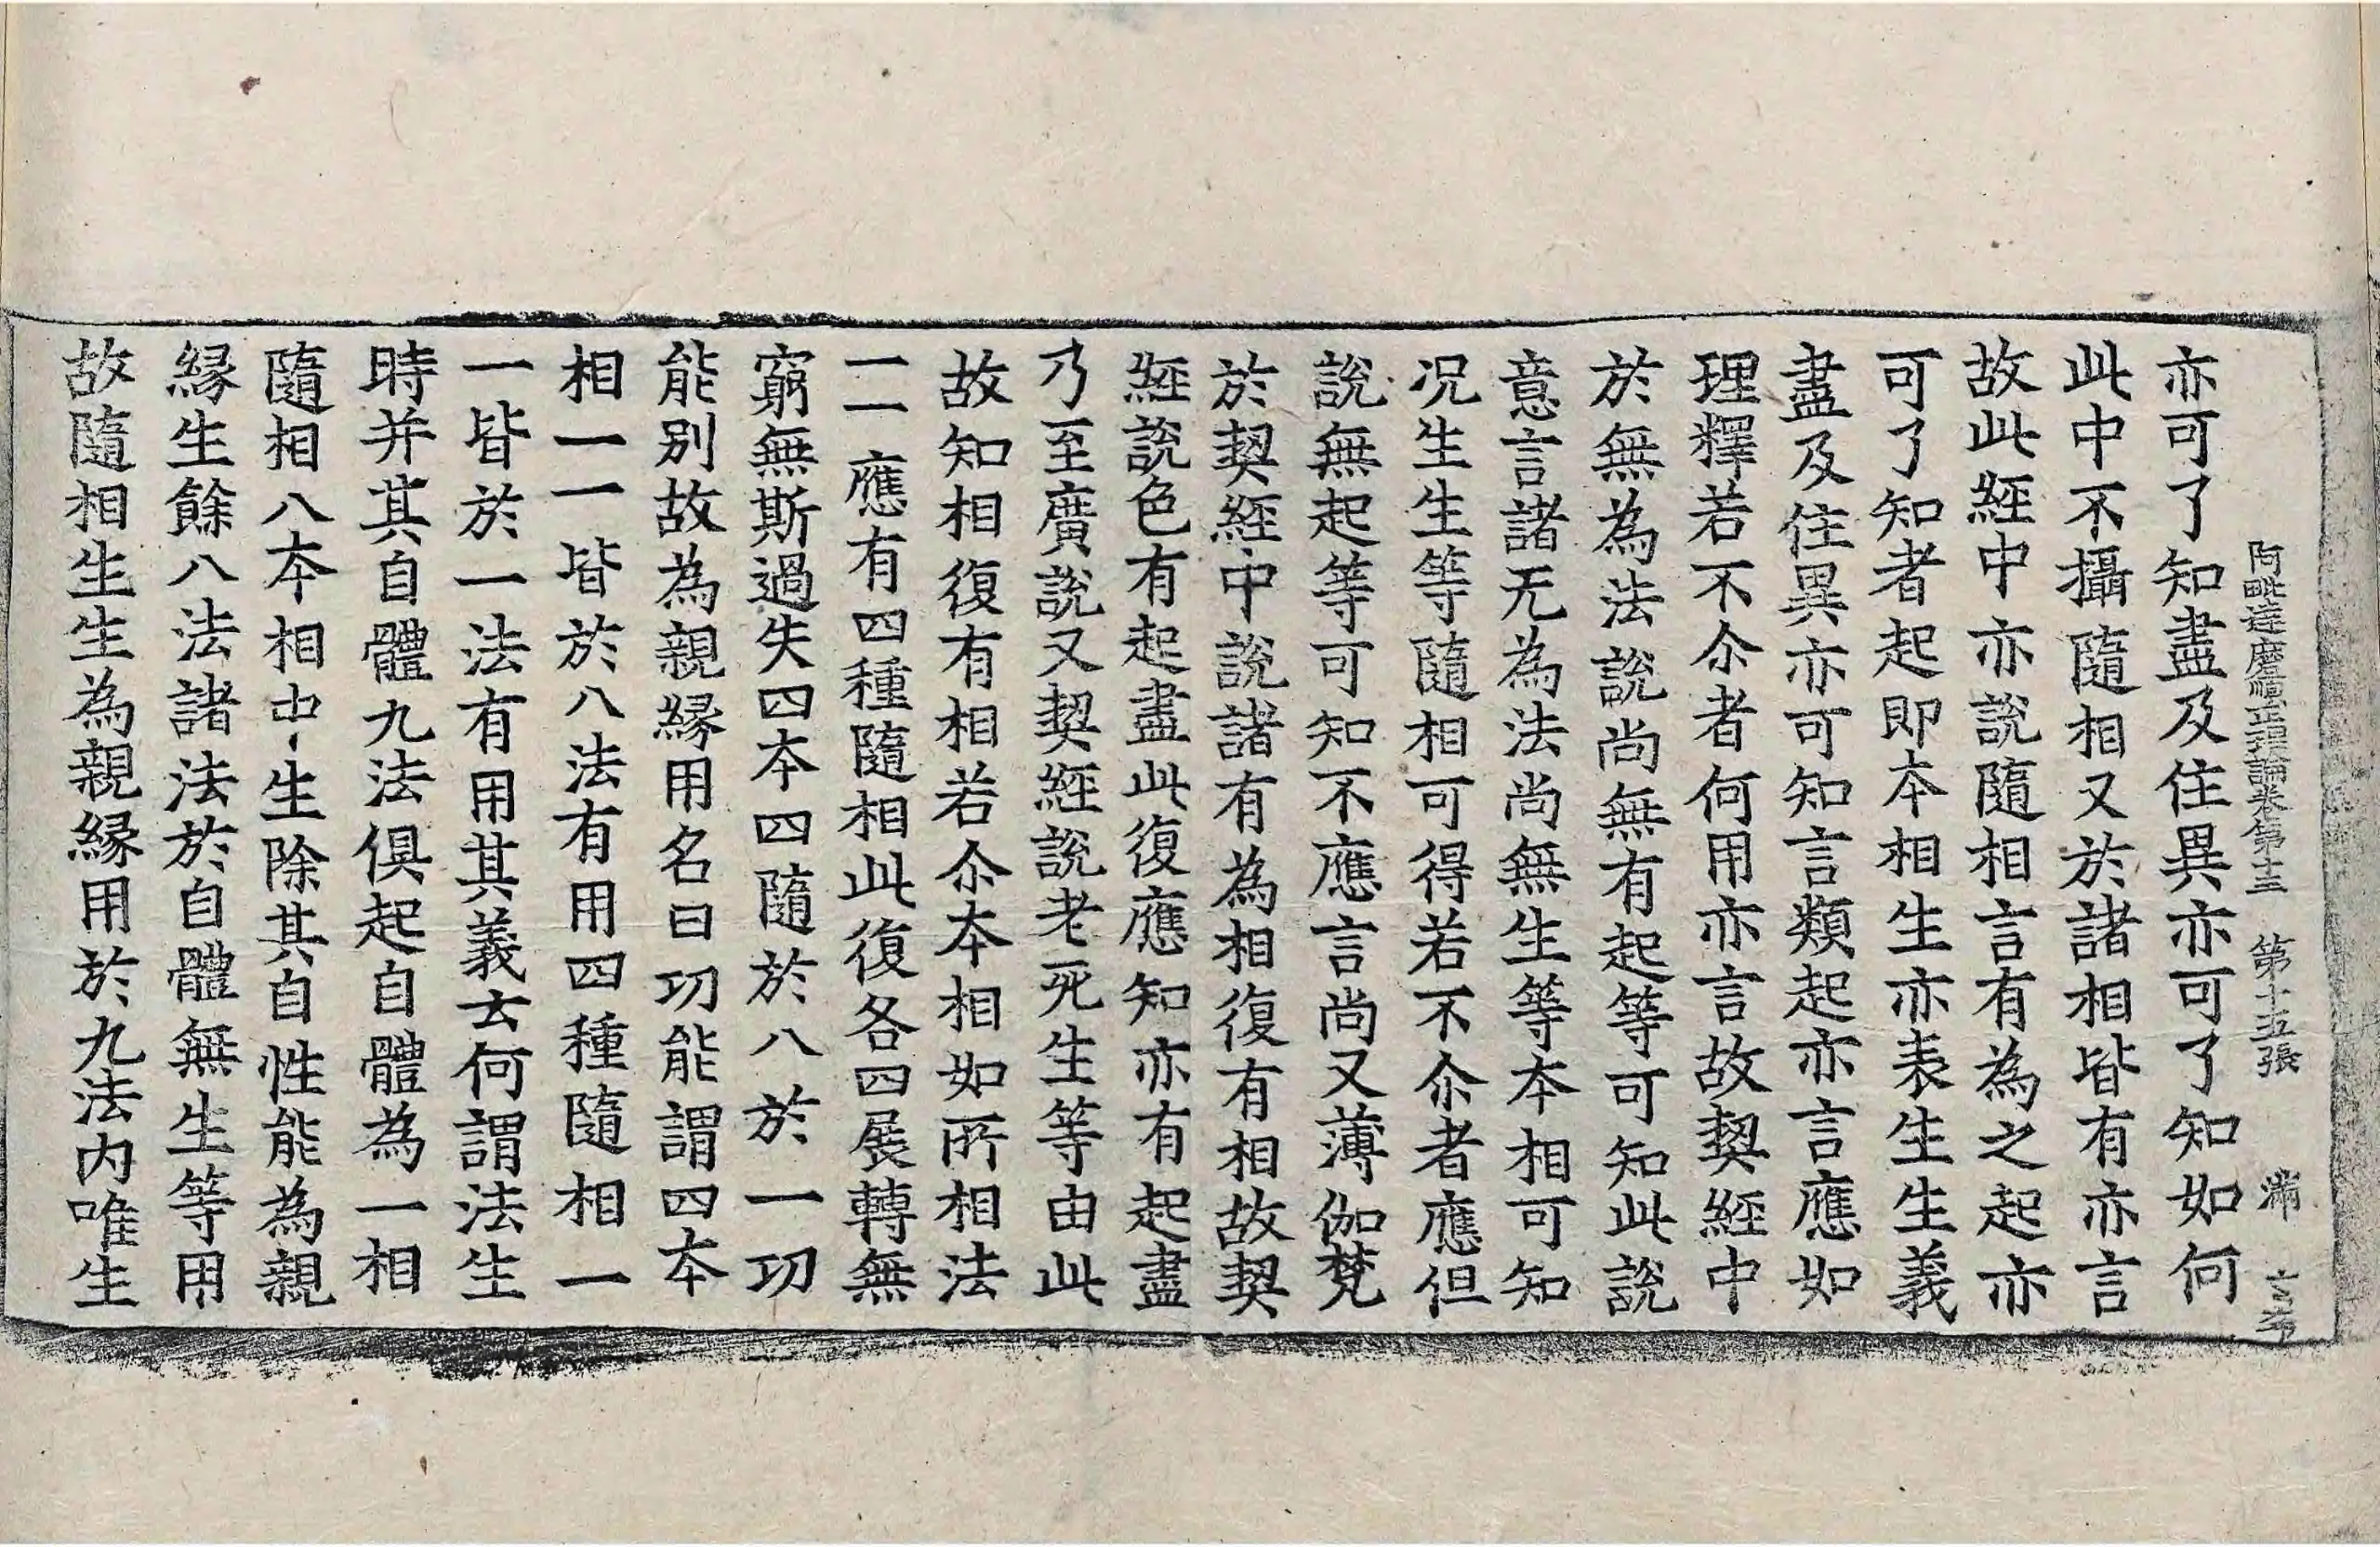 阿毗達磨順正理論卷第十三　第十五張　滿
亦可了知盡及住異亦可了知如何
此中不攝隨相又於諸相皆有亦言
故此經中亦說隨相言有為之起亦
可了知者起即本相生亦表生生義
盡及住異亦可知言類起亦言應如
理釋若不尒者何用亦言故契經中
於無為法說尚無有起等可知此說
意言諸无為法尚無生等本相可知
況生生等隨相可得若不尒者應但
說無起等可知不應言尚又薄伽梵
於契經中說諸有為相復有相故契
經說色有起盡此復應知亦有起盡
乃至廣說又契經說老死生等由此
故知相復有相若尒本相如所相法
一一應有四種隨相此復各四展轉無
窮無斯過失四本四隨於八於一功
能別故為親緣用名曰功能謂四本
相一一皆於八法有用四種隨相一
一皆於一法有用其義云何謂法生
時并其自體九法俱起自體為一相
隨相八本相中生除其自性能為親
緣生餘八法諸法於自體無生等用
故隨相生生為親緣用於九法內唯生